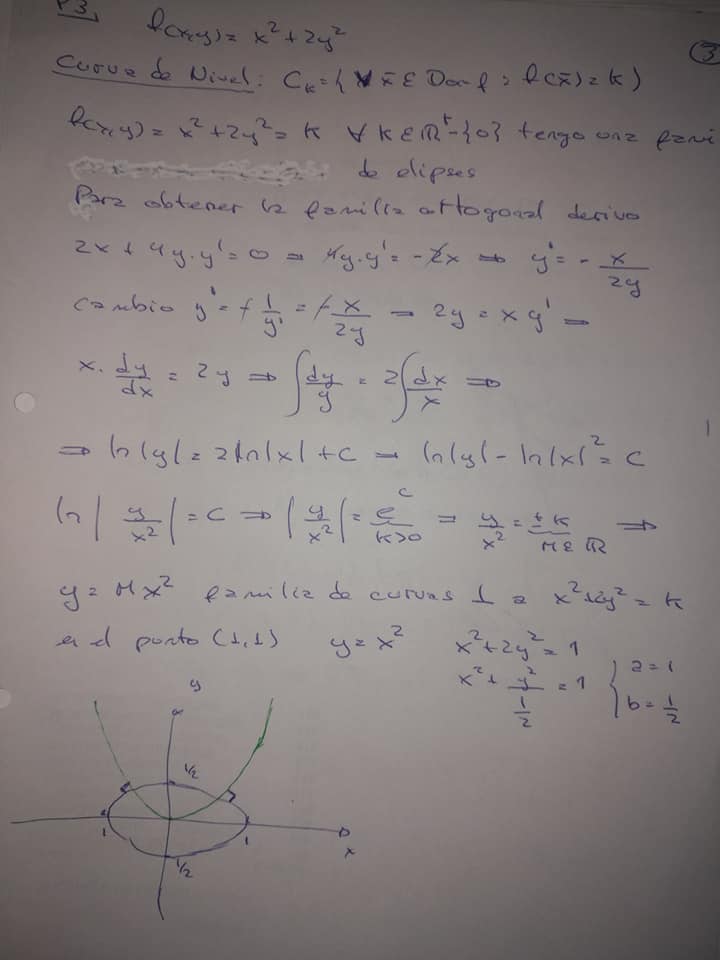 P3,
f(x,y) = x² + 2y²
3
Curva de Nivel: C_k = { ∀ x̄ ∈ Dom f : f(x̄) = k )
f(x,y) = x² + 2y² = k ∀ k ∈ ℝ⁺ - {0} tengo una fami
de elipses
Para obtener la familia ortogonal derivo
2x + 4y.y' = 0 ⇒ 4y.y' = -2x ⇒ y' = - x/2y
cambio y' = -1/y' = -x/2y → 2y = x y' ⇒
x. dy/dx = 2y ⇒ ∫dy/y = 2∫dx/x ⇒
⇒ ln|y| = 2 ln|x| + C → ln|y| - ln|x|² = C
ln | y/x² | = C ⇒ | y/x² | = e^C k>0 ⇒ y/x² = ± k M ∈ ℝ ⇒
y = Mx² familia de curvas ⊥ a x²+2y² = k
en el punto (1,1) y = x² x² + 2y² = 1
x² + y²/(1/2) = 1 { a = 1
b = 1/2
y
1/2
1 1
x
1/2